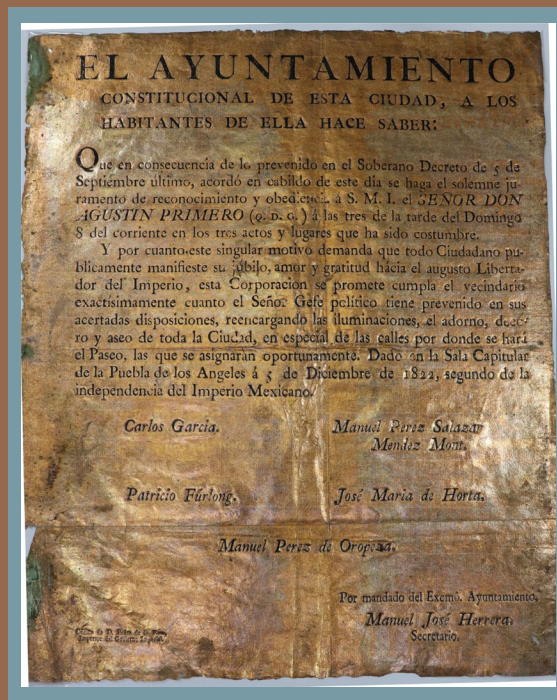 EL AYUNTAMIENTO
CONSTITUCIONAL DE ESTA CIUDAD, A LOS
HABITANTES DE ELLA HACE SABER:
Que en consecuencia de lo prevenido en el Soberano Decreto de 5 de
Septiembre último, acordó en cabildo de este dia se haga el solemne ju-
ramento de reconocimiento y obediencia á S. M. I. el SEÑOR DON
AGUSTIN PRIMERO (Q. D. G.) á las tres de la tarde del Domingo
8 del corriente en los tres actos y lugares que ha sido costumbre.
Y por cuanto este singular motivo demanda que todo Ciudadano pu-
blicamente manifieste su júbilo, amor y gratitud hácia el augusto Liberta-
dor del Imperio, esta Corporacion se promete cumpla el vecindario
exactísimamente cuanto el Señor Gefe político tiene prevenido en sus
acertadas disposiciones, reencargando las iluminaciones, el adorno, deco-
ro y aseo de toda la Ciudad, en especial de las calles por donde se hará
el Paseo, las que se asignarán oportunamente. Dado en la Sala Capitular
de la Puebla de los Angeles á 5 de Diciembre de 1822, segundo de la
independencia del Imperio Mexicano.
Carlos Garcia.
Manuel Perez Salazar
Mendez Mont.
Patricio Fúrlong.
José Maria de Horta.
Manuel Perez de Oropeza.
Por mandado del Exemô. Ayuntamiento.
Manuel José Herrera.
Secretario.